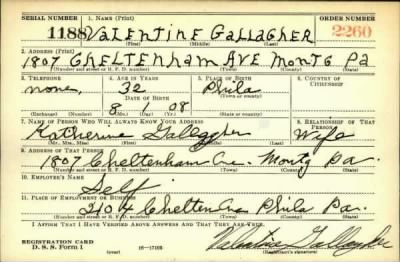 SERIAL NUMBER 1. NAME (Print) ORDER NUMBER
1188 VALENTINE GALLAGHER 2260
(First) (Middle) (Last)
2. ADDRESS (Print)
1807 CHELTENHAM AVE MONTG PA
(Number and street or R. F. D. number) (Town) (County) (State)
3. TELEPHONE 4. AGE IN YEARS 5. PLACE OF BIRTH 6. COUNTRY OF CITIZENSHIP
none 32 Phila
DATE OF BIRTH (Town or county)
8 1 08
(Exchange) (Number) (Mo.) (Day) (Yr.) (State or country)
7. NAME OF PERSON WHO WILL ALWAYS KNOW YOUR ADDRESS 8. RELATIONSHIP OF THAT PERSON
Katherine Gallagher Wife
(Mr., Mrs., Miss) (First) (Middle) (Last)
9. ADDRESS OF THAT PERSON
1807 Cheltenham Ave. Montg Pa.
(Number and street or R. F. D. number) (Town) (County) (State)
10. EMPLOYER'S NAME
Self
11. PLACE OF EMPLOYMENT OR BUSINESS
2104 Chelten Ave Phila Pa.
(Number and street or R. F. D. number) (Town) (County) (State)
I AFFIRM THAT I HAVE VERIFIED ABOVE ANSWERS AND THAT THEY ARE TRUE.
REGISTRATION CARD
D. S. S. Form 1 (over) 16—17105 Valentine Gallagher
(Registrant's signature)